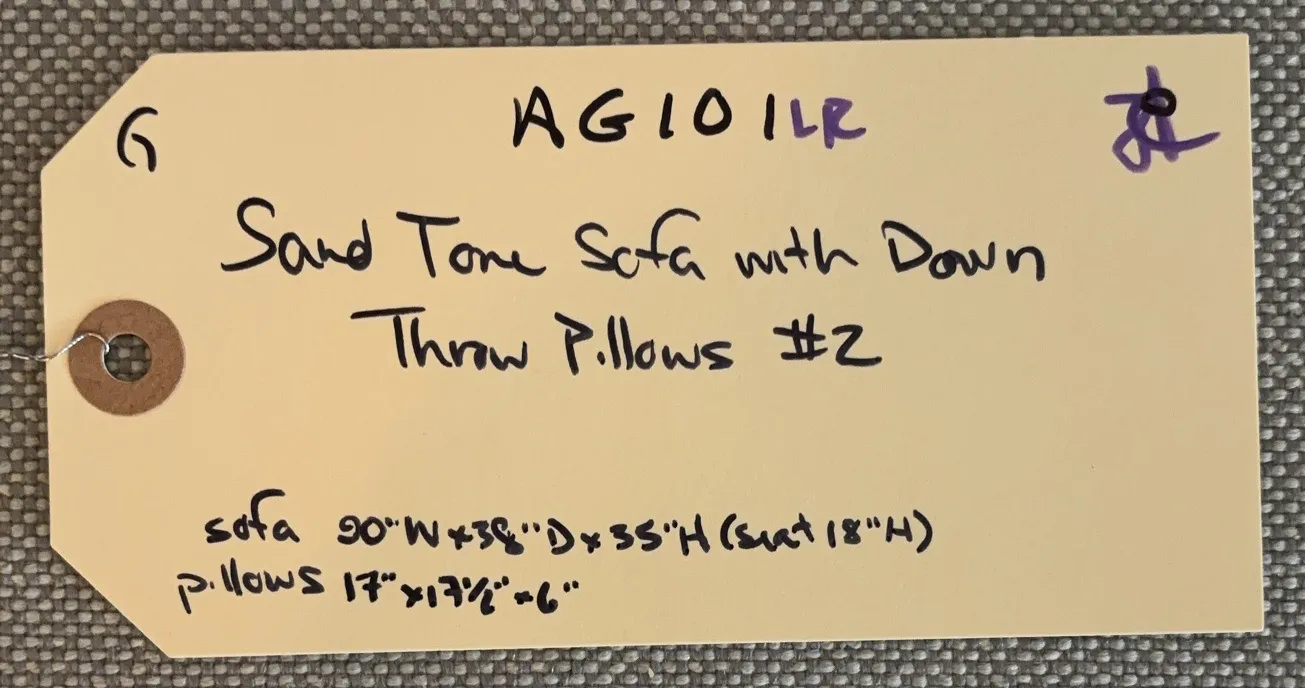 G
AG101LR
Sand Tone Sofa with Down
Throw Pillows #2
sofa 90"W x 38"D x 35"H (seat 18"H)
pillows 17" x 17½" x 6"